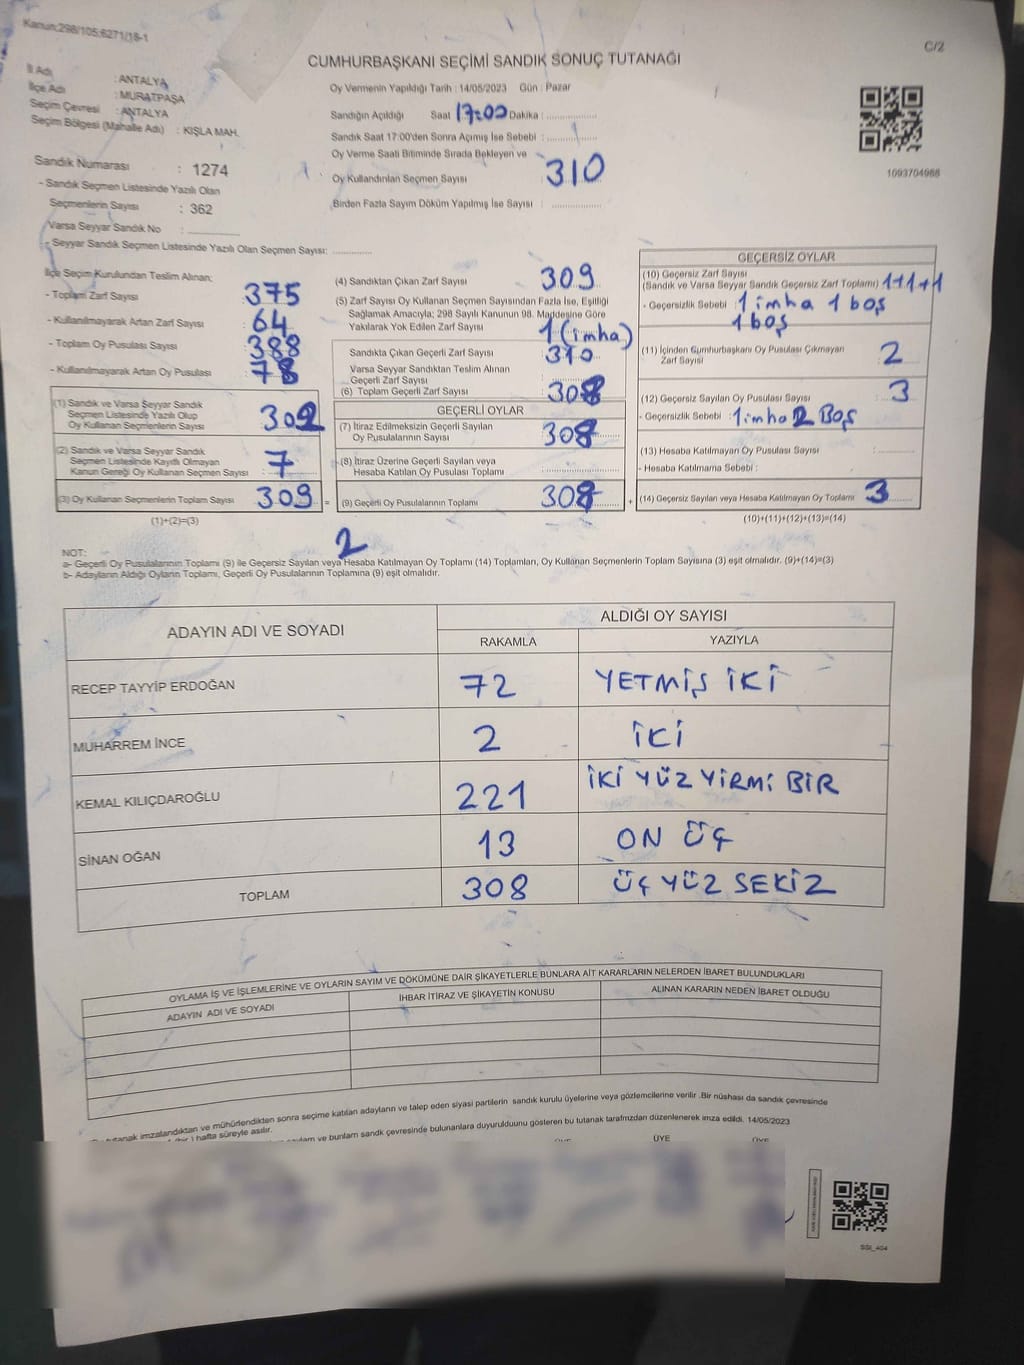 Kanun:298/105;6271/18-1
C/2
CUMHURBAŞKANI SEÇİMİ SANDIK SONUÇ TUTANAĞI
İl Adı : ANTALYA
İlçe Adı : MURATPAŞA
Seçim Çevresi : ANTALYA
Seçim Bölgesi (Mahalle Adı) : KIŞLA MAH.
Sandık Numarası : 1274
- Sandık Seçmen Listesinde Yazılı Olan
Seçmenlerin Sayısı : 362
Varsa Seyyar Sandık No :
- Seyyar Sandık Seçmen Listesinde Yazılı Olan Seçmen Sayısı:
Oy Vermenin Yapıldığı Tarih : 14/05/2023 Gün : Pazar
Sandığın Açıldığı Saat 17:00 Dakika :
Sandık Saat 17:00'den Sonra Açımış İse Sebebi :
Oy Verme Saati Bitiminde Sırada Bekleyen ve
Oy Kullandırılan Seçmen Sayısı 310
Birden Fazla Sayım Döküm Yapılmış İse Sayısı :
1093704988
İlçe Seçim Kurulundan Teslim Alınan;
- Toplam Zarf Sayısı : 375
- Kullanılmayarak Artan Zarf Sayısı : 64
- Toplam Oy Pusulası Sayısı : 388
- Kullanılmayarak Artan Oy Pusulası : 78
(1) Sandık ve Varsa Seyyar Sandık
Seçmen Listesinde Yazılı Olup
Oy Kullanan Seçmenlerin Sayısı : 302
(2) Sandık ve Varsa Seyyar Sandık
Seçmen Listesinde Kayıtlı Olmayan
Kanun Gereği Oy Kullanan Seçmen Sayısı : 7
(3) Oy Kullanan Seçmenlerin Toplam Sayısı 309 =
(1)+(2)=(3)
(4) Sandıktan Çıkan Zarf Sayısı 309
(5) Zarf Sayısı Oy Kullanan Seçmen Sayısından Fazla İse, Eşitliği
Sağlamak Amacıyla; 298 Sayılı Kanunun 98. Maddesine Göre
Yakılarak Yok Edilen Zarf Sayısı 1 (imha)
Sandıkta Çıkan Geçerli Zarf Sayısı 310
Varsa Seyyar Sandıktan Teslim Alınan
Geçerli Zarf Sayısı
(6) Toplam Geçerli Zarf Sayısı 308
GEÇERLİ OYLAR
(7) İtiraz Edilmeksizin Geçerli Sayılan
Oy Pusulalarının Sayısı 308
(8) İtiraz Üzerine Geçerli Sayılan veya
Hesaba Katılan Oy Pusulası Toplamı
(9) Geçerli Oy Pusulalarının Toplamı 308 +
GEÇERSİZ OYLAR
(10) Geçersiz Zarf Sayısı
(Sandık ve Varsa Seyyar Sandık Geçersiz Zarf Toplamı) 1+1+1
- Geçersizlik Sebebi : 1 imha 1 boş
1 boş
(11) İçinden Cumhurbaşkanı Oy Pusulası Çıkmayan
Zarf Sayısı 2
(12) Geçersiz Sayılan Oy Pusulası Sayısı 3
- Geçersizlik Sebebi : 1 imha 2 Boş
(13) Hesaba Katılmayan Oy Pusulası Sayısı :
- Hesaba Katılmama Sebebi :
(14) Geçersiz Sayılan veya Hesaba Katılmayan Oy Toplamı 3
(10)+(11)+(12)+(13)=(14)
2
NOT:
a- Geçerli Oy Pusulalarının Toplamı (9) ile Geçersiz Sayılan veya Hesaba Katılmayan Oy Toplamı (14) Toplamları, Oy Kullanan Seçmenlerin Toplam Sayısına (3) eşit olmalıdır. (9)+(14)=(3)
b- Adayların Aldığı Oyların Toplamı, Geçerli Oy Pusulalarının Toplamına (9) eşit olmalıdır.
ADAYIN ADI VE SOYADI
ALDIĞI OY SAYISI
RAKAMLA YAZIYLA
RECEP TAYYİP ERDOĞAN 72 YETMİŞ İKİ
MUHARREM İNCE 2 İKİ
KEMAL KILIÇDAROĞLU 221 İKİ YÜZ YİRMİ BİR
SİNAN OĞAN 13 ON ÜÇ
TOPLAM 308 ÜÇ YÜZ SEKİZ
OYLAMA İŞ VE İŞLEMLERİNE VE OYLARIN SAYIM VE DÖKÜMÜNE DAİR ŞİKAYETLERLE BUNLARA AİT KARARLARIN NELERDEN İBARET BULUNDUKLARI
ADAYIN ADI VE SOYADI İHBAR İTİRAZ VE ŞİKAYETİN KONUSU ALINAN KARARIN NEDEN İBARET OLDUĞU
tutanak imzalandıktan ve mühürlendikten sonra seçime katılan adayların ve talep eden siyasi partilerin sandık kurulu üyelerine veya gözlemcilerine verilir .Bir nüshası da sandık çevresinde
hafta süreyle asılır.
ve bunların sandık çevresinde bulunanlara duyurulduunu gösteren bu tutanak tarafımızdan düzenlenerek imza edildi. 14/05/2023
ÜYE
SSİ_404